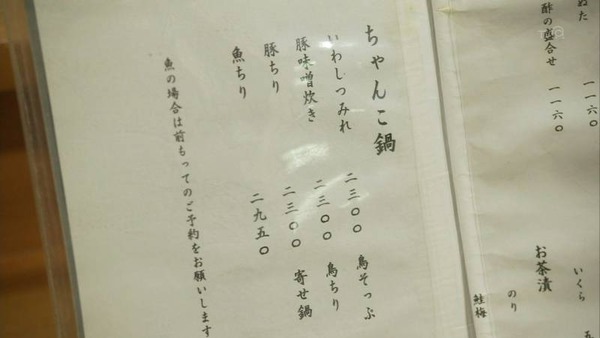 ぬた 一一六〇
酢の盛合せ 一一六〇
お茶漬
いくら
のり
鮭 梅
ちゃんこ鍋
いわしつみれ 二三〇〇 鳥そっぷ
豚味噌炊き 二三〇〇 鳥ちり
豚ちり 二三〇〇 寄せ鍋
魚ちり 二九五〇
魚の場合は前もってのご予約をお願いします